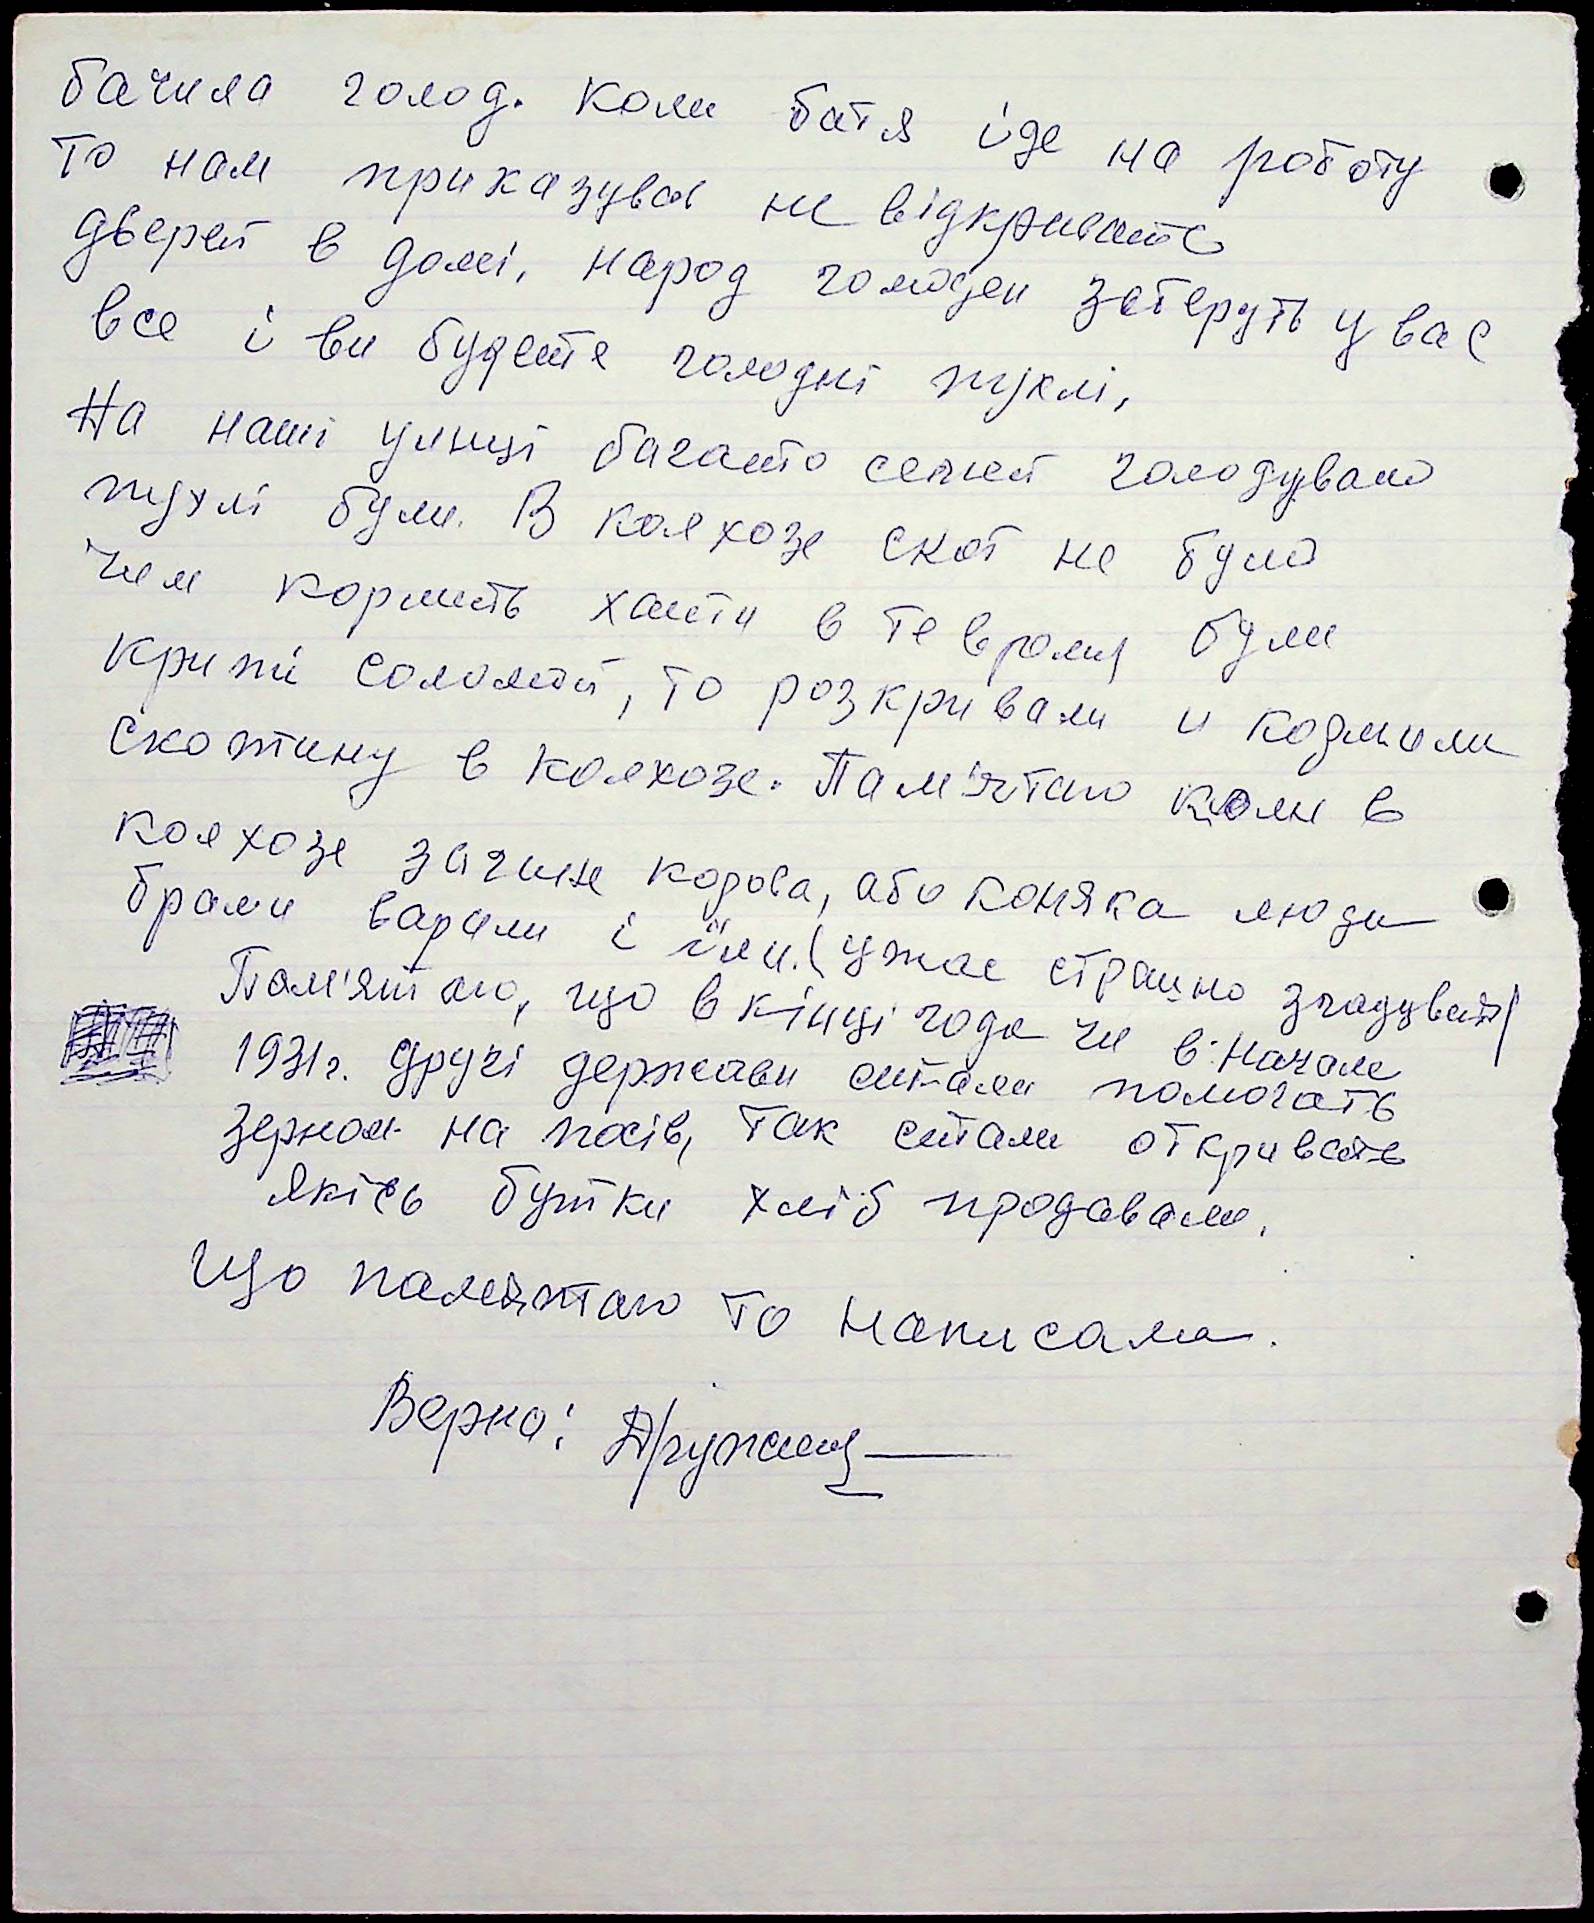 бачила голод. Коли батя іде на роботу
то нам приказував не відкривать
дверей в домі, народ голоден заберуть у вас
все і ви будете голодні пухлі,
На наші улиці багато семей голодувало
пухлі були. В колхозе скот не було
чим кормить хати в те время були
криті соломой, то розкривали и кормили
скотину в колхозе. Пам'ятаю коли в
колхозе загине корова, або коняка люди
брали варили і їли. (ужас страшно згадувать)
Пам'ятаю, що в кінці года чи в начале
1931г. другі держави стали помогать
зерном на посів, так стали открывать
якісь будки хліб продавали.
Що памятаю то написала.
Верно: